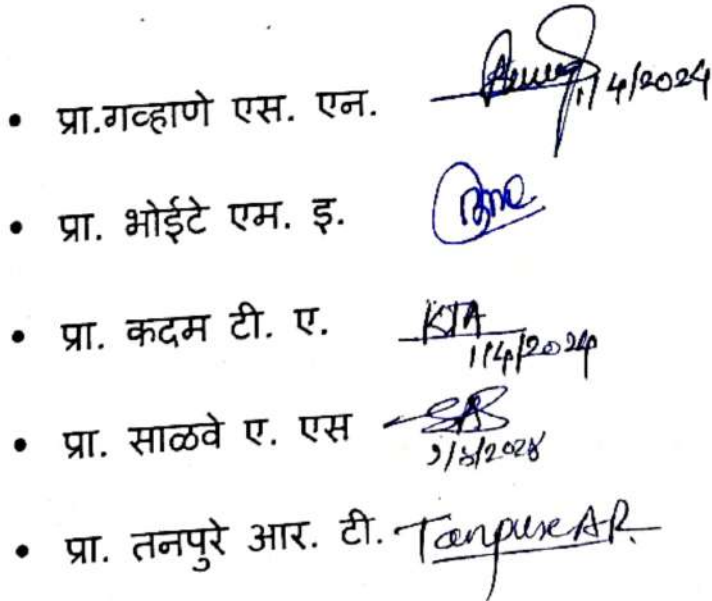 • प्रा.गव्हाणे एस. एन. 1/4/2024
• प्रा. भोईटे एम. इ.
• प्रा. कदम टी. ए. KTA
1/4/2024
• प्रा. साळवे ए. एस
• प्रा. तनपुरे आर. टी. Tanpure A.R.